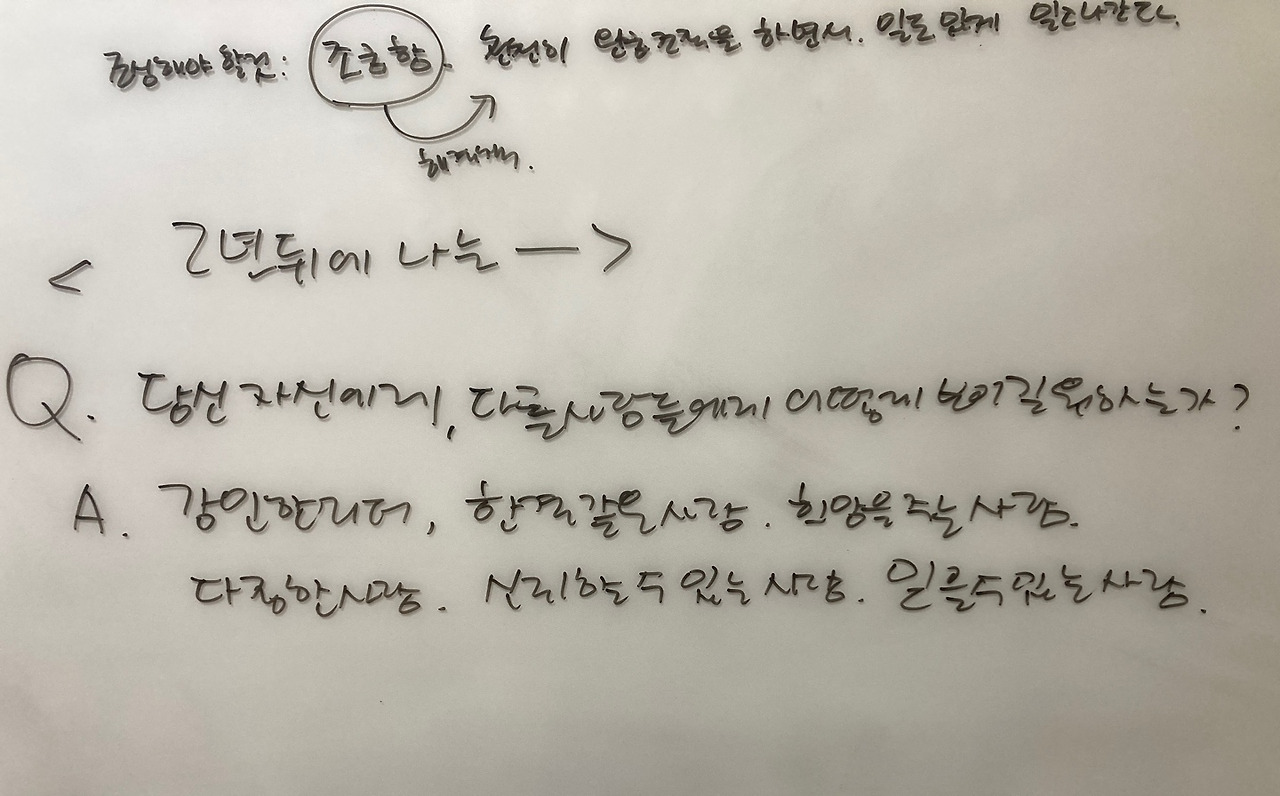 조심해야 할것: 조급함. 천천히 완급조절을 하면서. 밀도있게 밀고나간다.
해결책.
< 2년뒤에 나는 — >
Q. 당신 자신에게, 다른사람들에게 어떻게 보이길 원하는가?
A. 강인한리더, 한결같은사람. 희망을 주는사람.
다정한사람. 신뢰할 수 있는 사람. 믿을수있는사람.